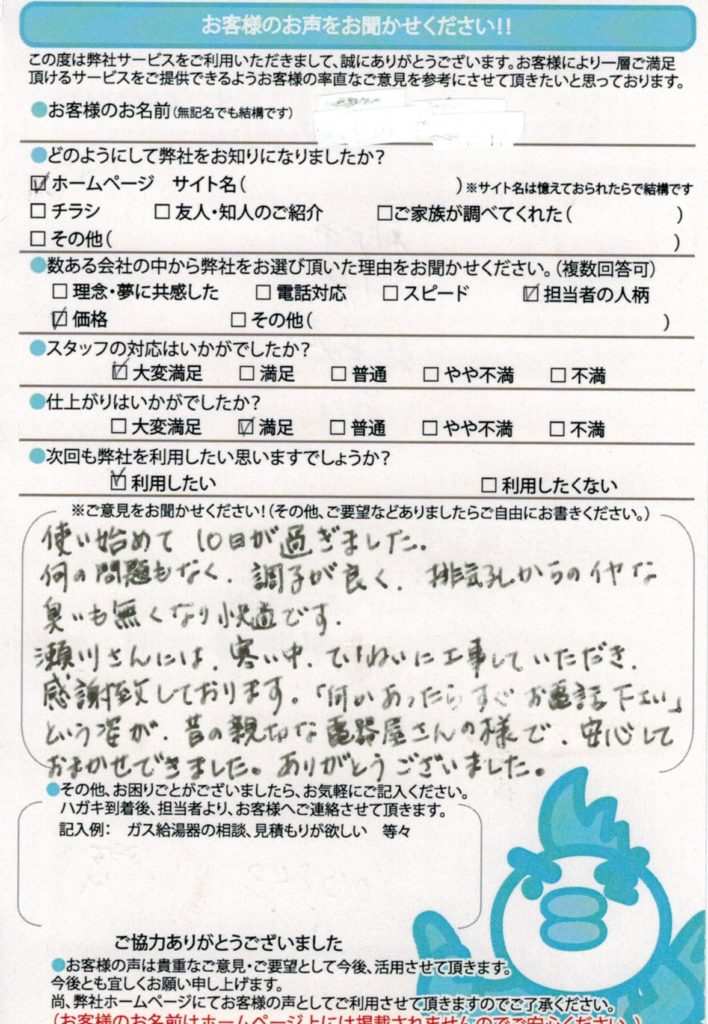 お客様のお声をお聞かせください!!
この度は弊社サービスをご利用いただきまして、誠にありがとうございます。お客様により一層ご満足
頂けるサービスをご提供できるようお客様の率直なご意見を参考にさせて頂きたいと思っております。
●お客様のお名前(無記名でも結構です)
●どのようにして弊社をお知りになりましたか?
☑ホームページ サイト名( )※サイト名は憶えておられたらで結構です
□チラシ □友人・知人のご紹介 □ご家族が調べてくれた( )
□その他( )
●数ある会社の中から弊社をお選び頂いた理由をお聞かせください。(複数回答可)
□理念・夢に共感した □電話対応 □スピード ☑担当者の人柄
☑価格 □その他( )
●スタッフの対応はいかがでしたか?
☑大変満足 □満足 □普通 □やや不満 □不満
●仕上がりはいかがでしたか?
□大変満足 ☑満足 □普通 □やや不満 □不満
●次回も弊社を利用したい思いますでしょうか?
☑利用したい □利用したくない
※ご意見をお聞かせください!(その他、ご要望などありましたらご自由にお書きください。)
使い始めて10日が過ぎました。
何の問題もなく、調子が良く、排気孔からのイヤな
臭いも無くなり快適です。
瀬川さんには、寒い中、ていねいに工事していただき、
感謝致しております。「何かあったらすぐお電話下さい」
という姿が、昔の親切な電器屋さんの様で、安心して
おまかせできました。ありがとうございました。
●その他、お困りごとがございましたら、お気軽にご記入ください。
ハガキ到着後、担当者より、お客様へご連絡させて頂きます。
記入例: ガス給湯器の相談、見積もりが欲しい 等々
ご協力ありがとうございました
●お客様の声は貴重なご意見・ご要望として今後、活用させて頂きます。
今後とも宜しくお願い申し上げます。
尚、弊社ホームページにてお客様の声としてご利用させて頂きますのでご了承ください。
(お客様のお名前はホームページ上には掲載されませんのでご安心ください。)